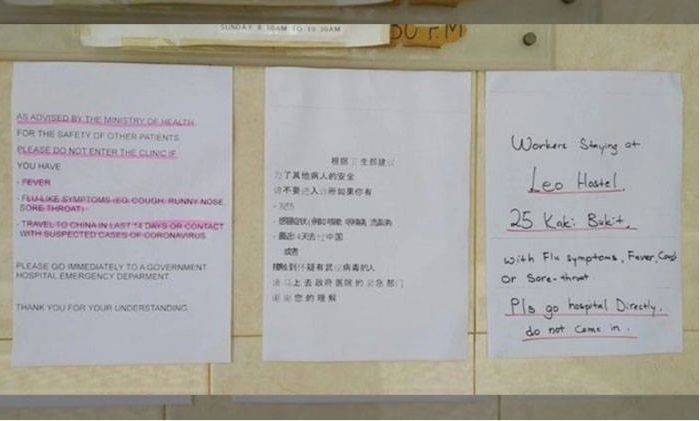 SUNDAY 8.30AM TO 10.30AM
30 P.M
AS ADVISED BY THE MINISTRY OF HEALTH
FOR THE SAFETY OF OTHER PATIENTS
PLEASE DO NOT ENTER THE CLINIC IF
YOU HAVE
- FEVER
- FLU-LIKE SYMPTOMS (EG. COUGH, RUNNY NOSE,
SORE THROAT)
- TRAVEL TO CHINA IN LAST 14 DAYS OR CONTACT
WITH SUSPECTED CASES OF CORONAVIRUS
PLEASE GO IMMEDIATELY TO A GOVERNMENT
HOSPITAL EMERGENCY DEPARMENT
THANK YOU FOR YOUR UNDERSTANDING
根据卫生部建议
为了其他病人的安全
请不要进入诊所如果你有
去过中国
或者
接触到怀疑有武汉病毒的人
请马上去政府医院的紧急部门
谢谢您的理解
Workers Staying at
Leo Hostel.
25 Kaki Bukit.
with Flu symptoms, Fever,
Or Sore-throat
Pls go hospital Directly.
do not come in.